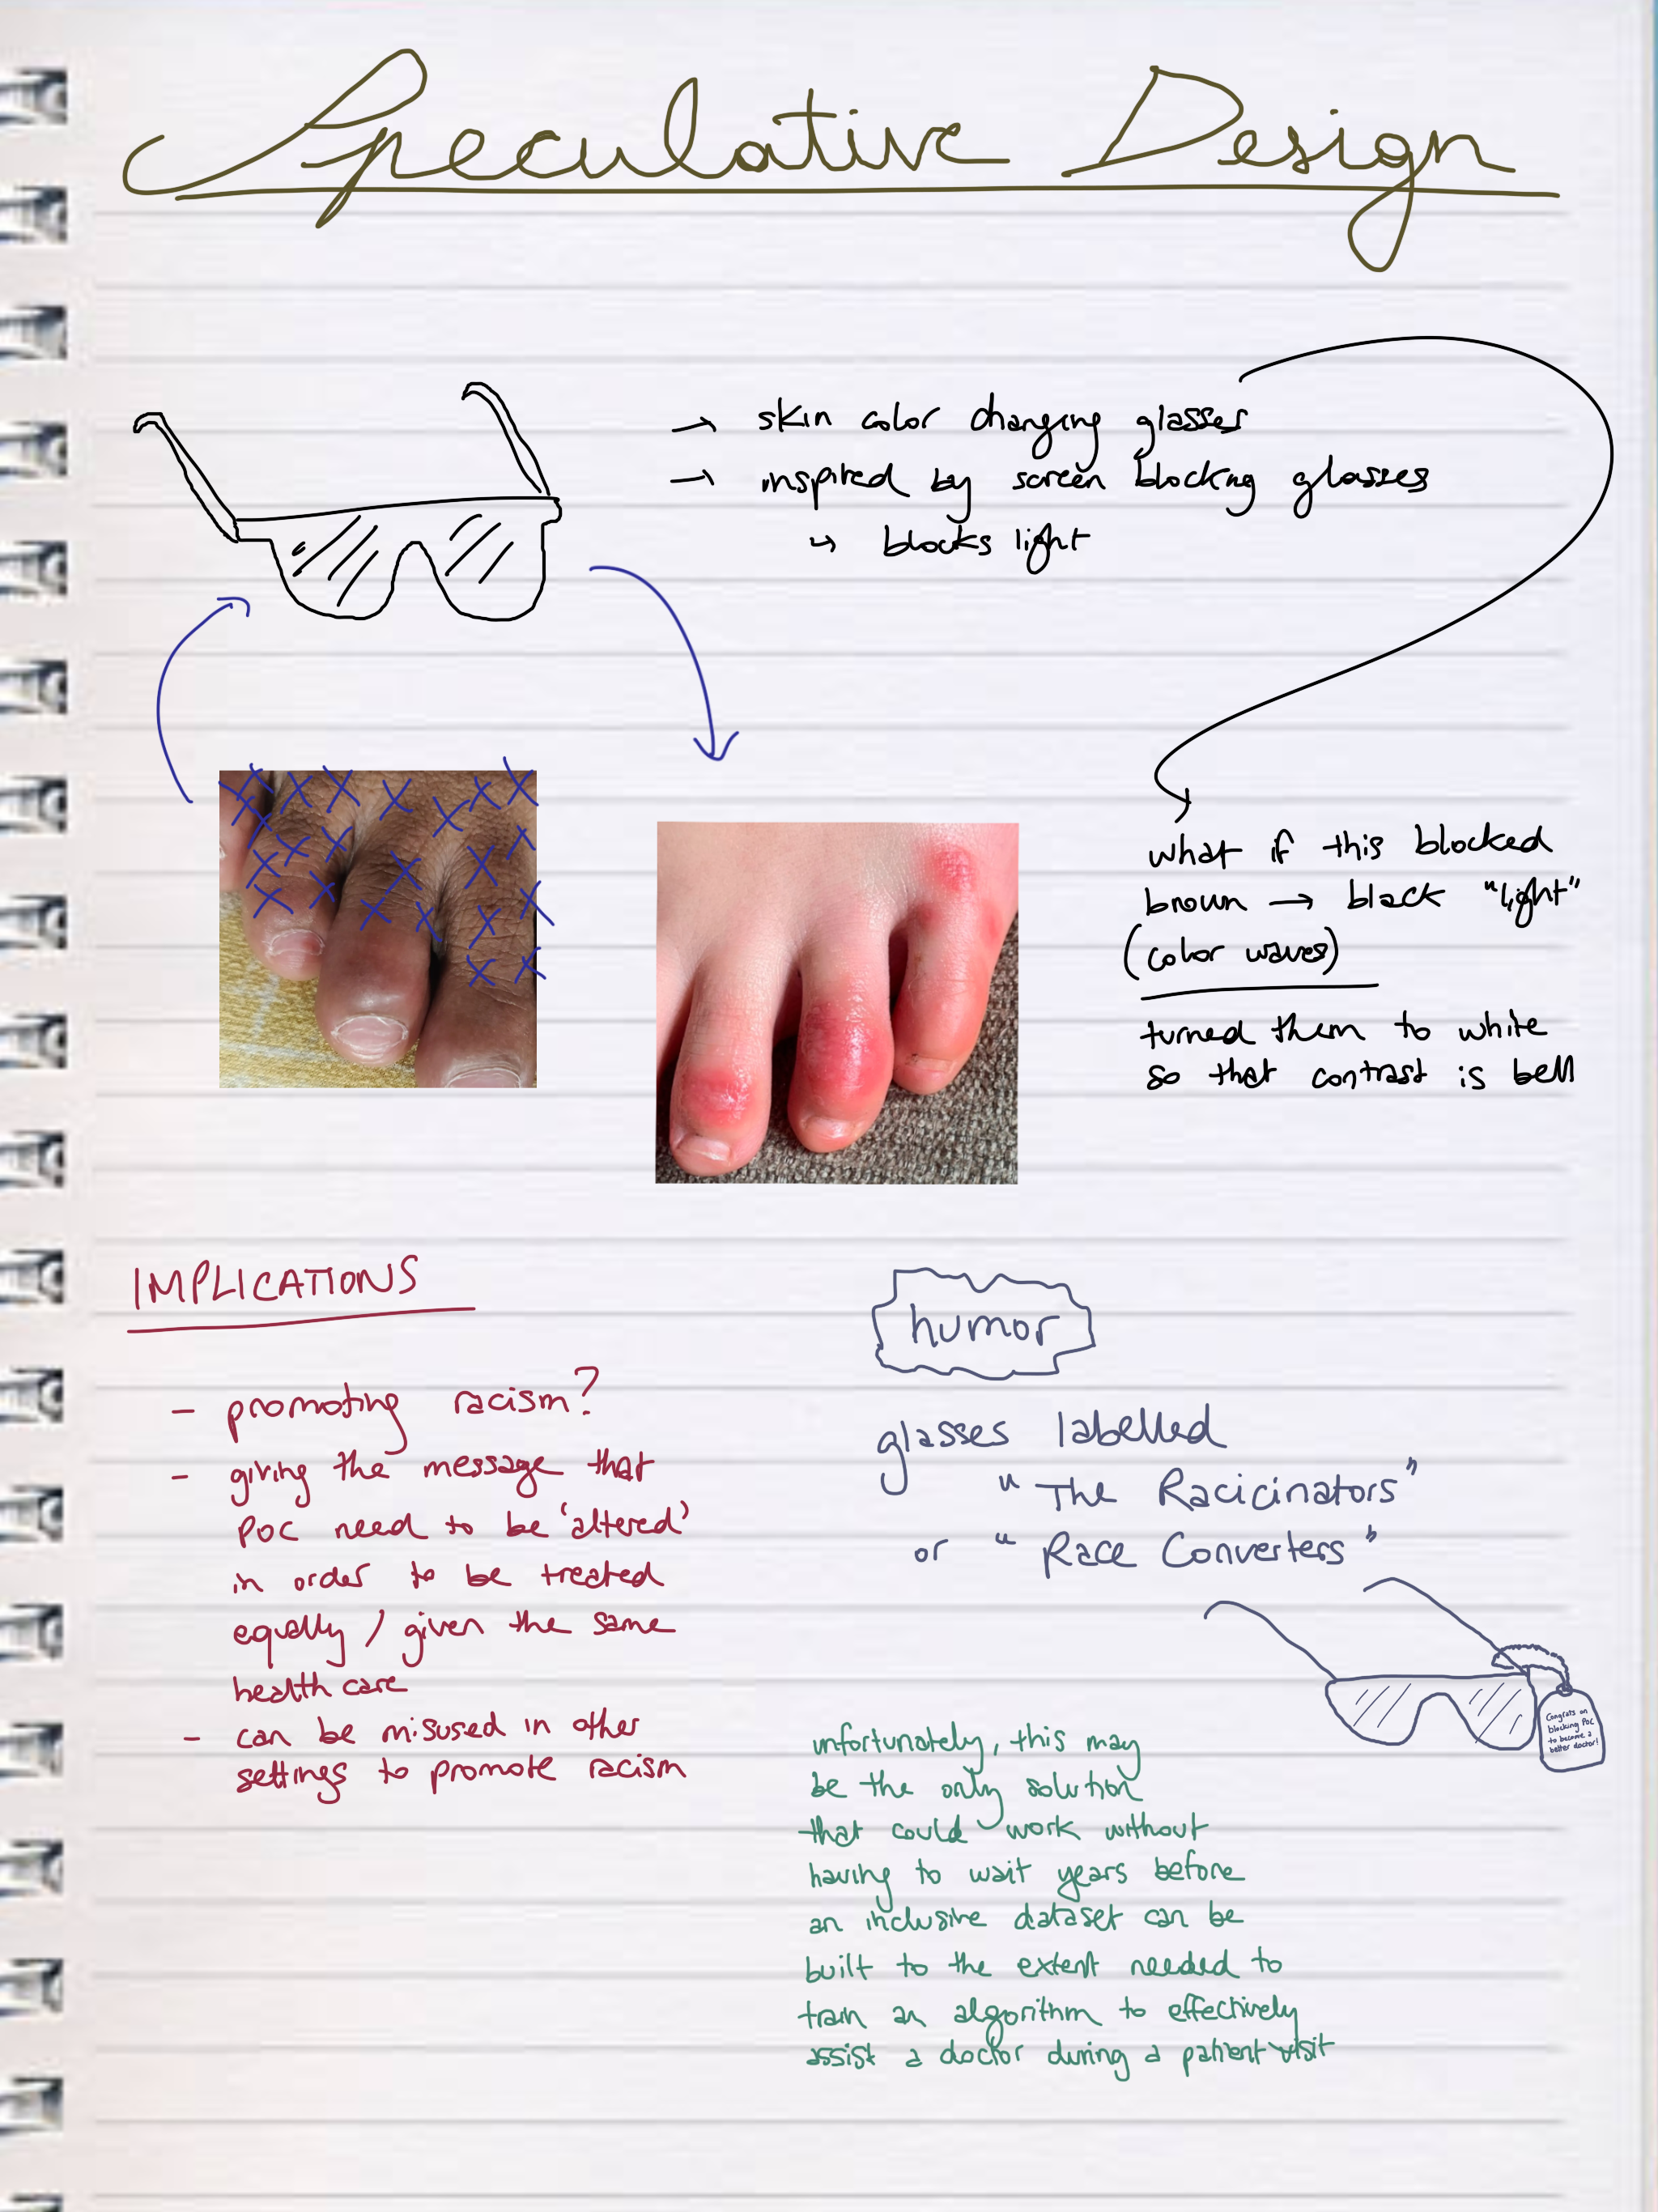 Speculative Design
→ skin color changing glasses
→ inspired by screen blocking glasses
↳ blocks light
what if this blocked
brown → black "light"
(color waves)
turned them to white
so that contrast is
IMPLICATIONS
- promoting racism?
- giving the message that
POC need to be 'altered'
in order to be treated
equally / given the same
health care
- can be misused in other
settings to promote racism
humor
glasses labelled
"The Racicinators"
or "Race Converters"
Congrats on
blocking POC
to become a
better doctor!
unfortunately, this may
be the only solution
that could work without
having to wait years before
an inclusive dataset can be
built to the extent needed to
train an algorithm to effectively
assist a doctor during a patient visit